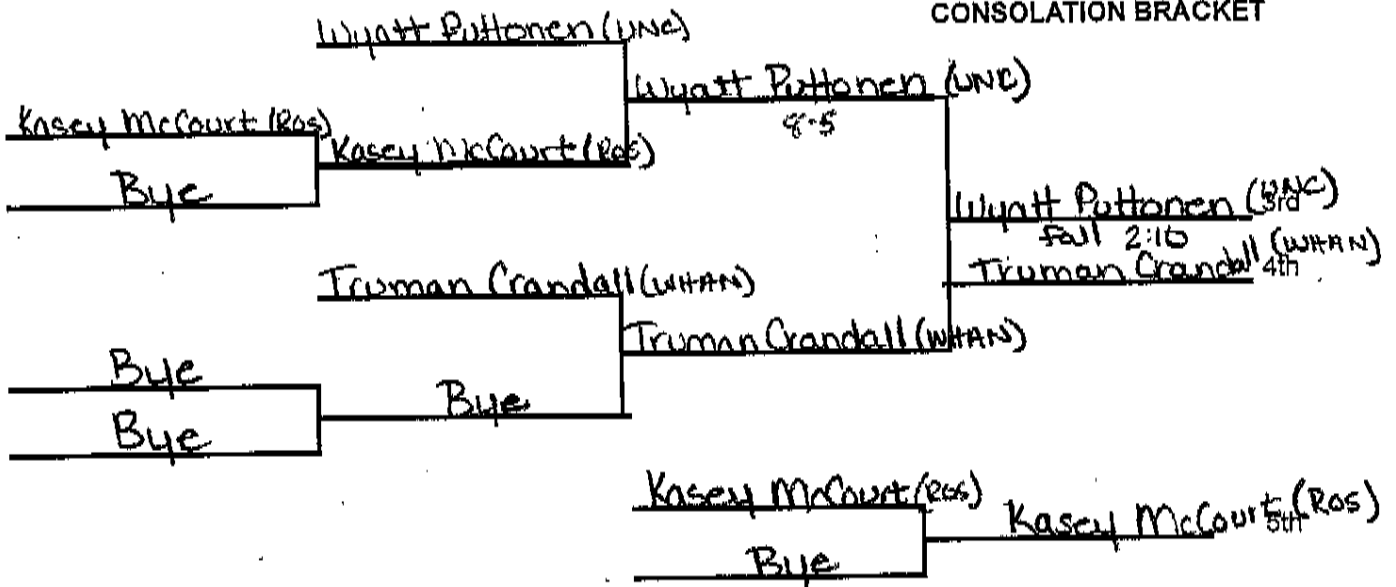 CONSOLATION BRACKET
Wyatt Puttonen (UNC)
Wyatt Puttonen (UNC)
8-5
Kasey McCourt (Ros)
Kasey McCourt (Ros)
Bye
Wyatt Puttonen (UNC)
3rd
fall 2:10
Truman Crandall (WHAN)
4th
Truman Crandall (WHAN)
Truman Crandall (WHAN)
Bye
Bye
Bye
Kasey McCourt (Ros)
Kasey McCourt (Ros)
5th
Bye